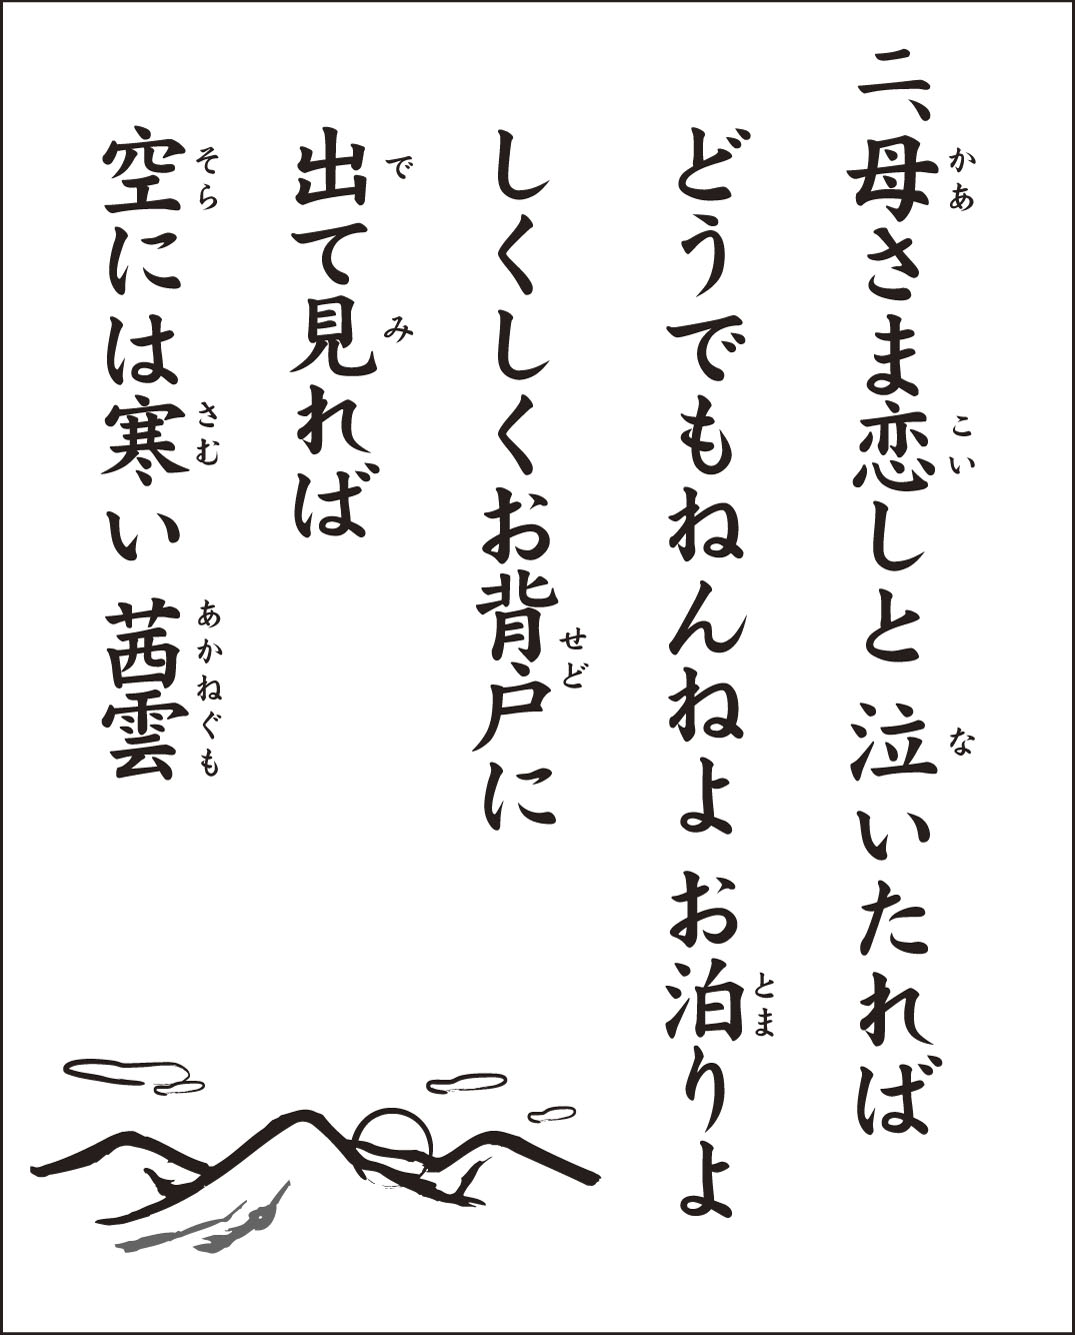 二、母さま恋しと 泣いたれば
どうでもねんねよ お泊りよ
しくしくお背戸に
出て見れば
空には寒い 茜雲
かあ
こい
な
とま
せど
で
み
そら
さむ
あかねぐも